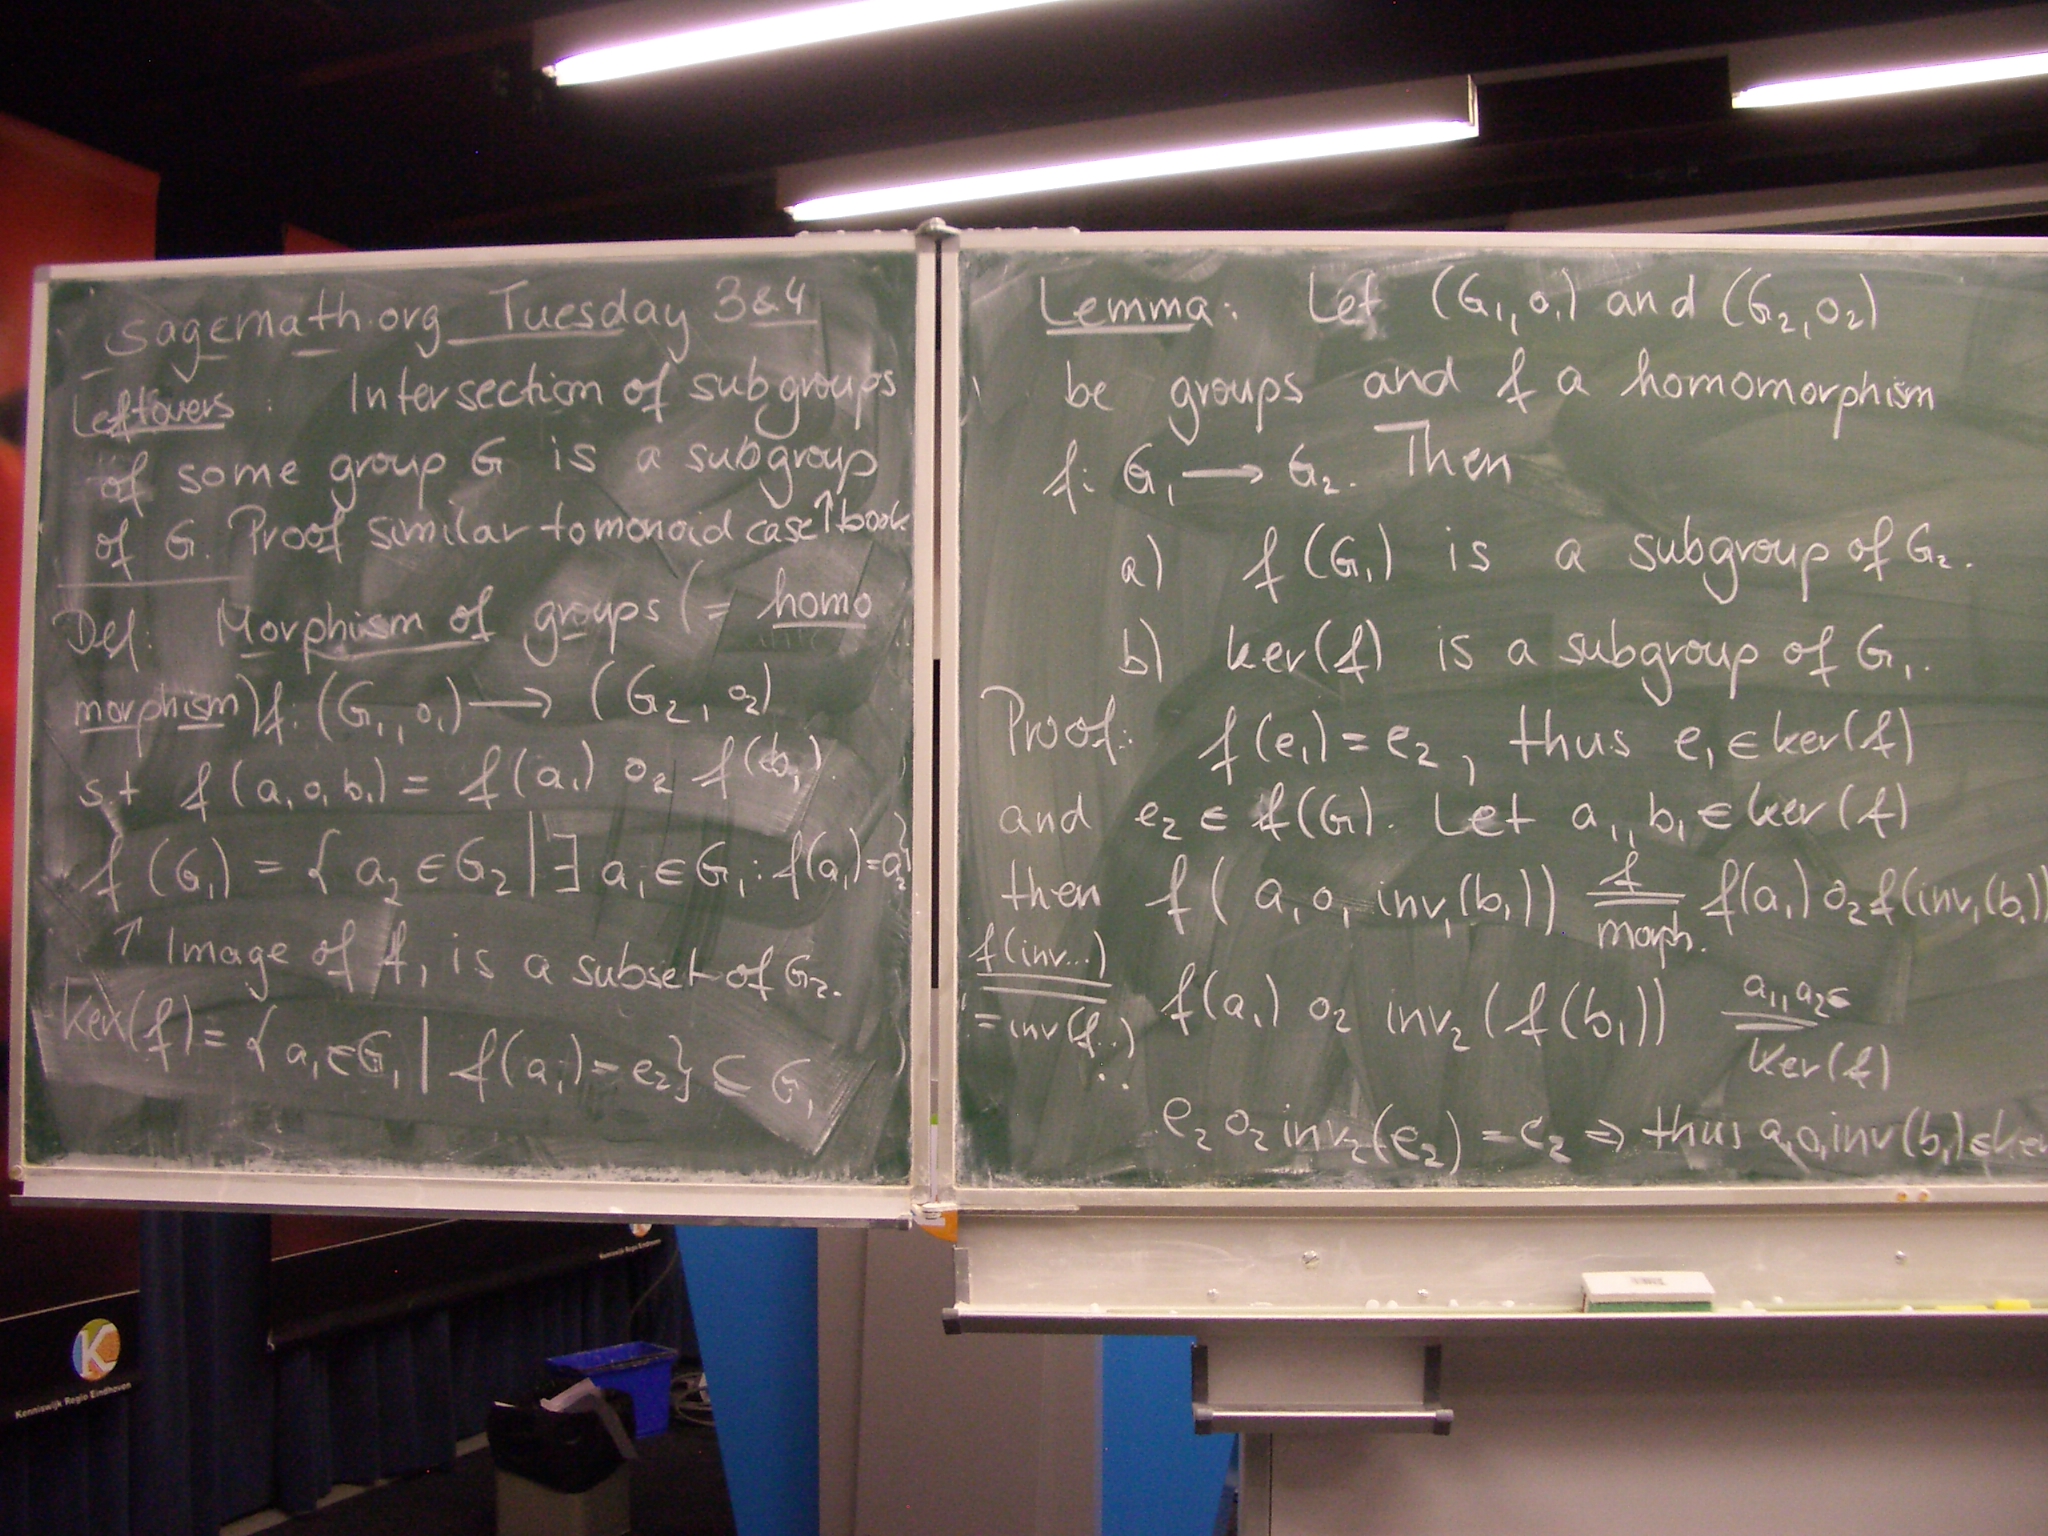 sagemath.org Tuesday 3&4
Leftovers : Intersection of subgroups
of some group G is a subgroup
of G. Proof similar to monoid case ↑ book
Def: Morphism of groups (= homo
morphism) f: (G₁, o₁) → (G₂, o₂)
s.t f(a₁ o₁ b₁) = f(a₁) o₂ f(b₁)
f(G₁) = { a₂ ∈ G₂ | ∃ a₁ ∈ G₁ : f(a₁) = a₂}
↑ Image of f, is a subset of G₂.
Ker(f) = { a₁ ∈ G₁ | f(a₁) = e₂} ⊆ G₁
Lemma: Let (G₁, o₁) and (G₂, o₂)
be groups and f a homomorphism
f: G₁ → G₂. Then
a) f(G₁) is a subgroup of G₂.
b) ker(f) is a subgroup of G₁.
Proof: f(e₁) = e₂, thus e₁ ∈ ker(f)
and e₂ ∈ f(G). Let a₁, b₁ ∈ ker(f)
then f( a₁ o₁ inv₁(b₁)) = f morph. f(a₁) o₂ f(inv₁(b₁))
f(inv...) = inv(f..) f(a₁) o₂ inv₂(f(b₁)) = a₁, a₂ ∈ ker(f)
e₂ o₂ inv₂(e₂) = e₂ ⇒ thus a₁ o₁ inv(b₁) ∈ ker
Kenniswijk Regio Eindhoven
K
Kenniswijk Regio Eindhoven